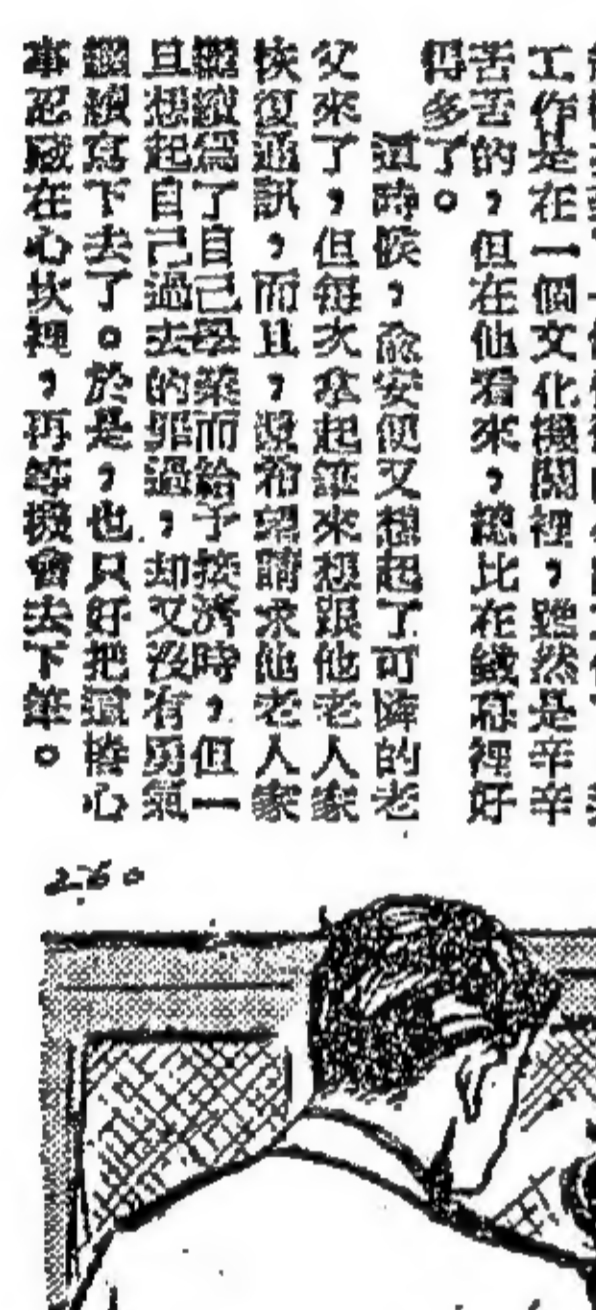 工作是在一個文化機關裡，雖然是辛辛
苦苦的，但在他看來，總比在鐵幕裡好
得多了。
這時候，俞安便又想起了可憐的老
父來了，但每次拿起筆來想跟他老人家
恢復通訊，而且，還希望請求他老人家
繼續爲了自己學業而給予接濟時，但一
且想起自己過去的罪過，却又沒有勇氣
繼續寫下去了。於是，也只好把這樁心
事忍藏在心坎裡，再等機會去下筆。
260